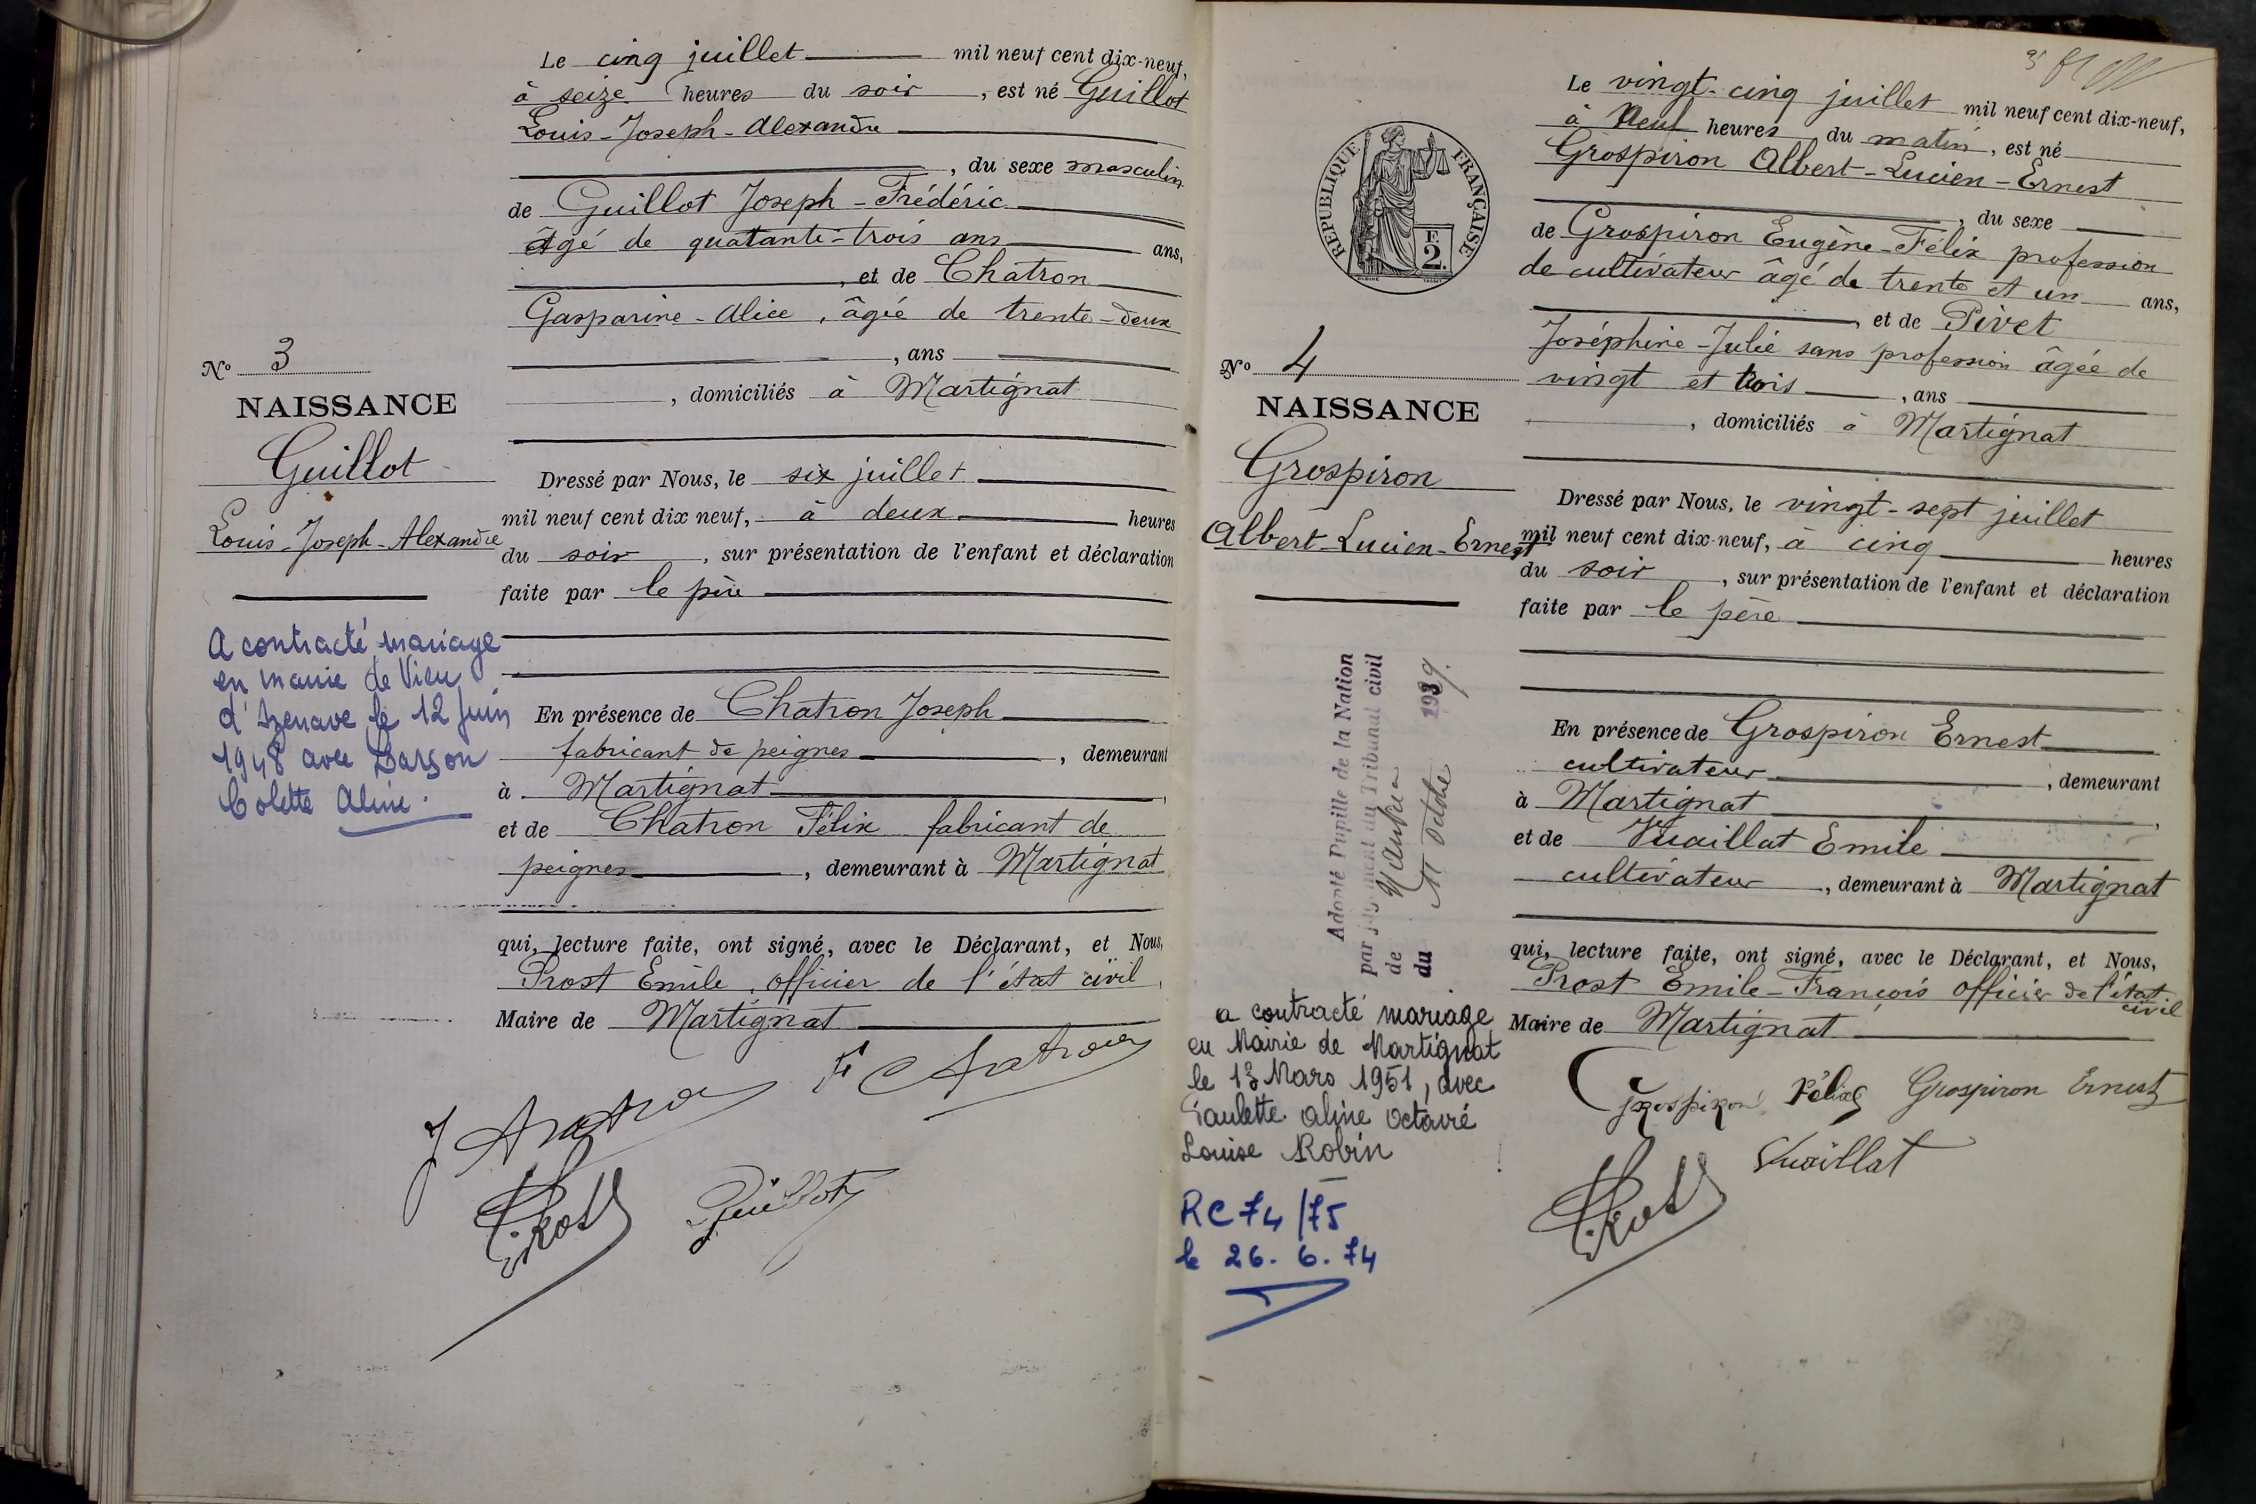 Le cinq juillet mil neuf cent dix-neuf,
à seize heures du soir, est né Guillot
Louis-Joseph-Alexandre
, du sexe masculin
de Guillot Joseph-Frédéric
âgé de quatante-trois ans ans,
, et de Chatron
Gasparine-Alice, âgée de trente-deux
, ans
, domiciliés à Martignat
No 3
NAISSANCE
Guillot
Louis-Joseph-Alexandre
Dressé par Nous, le six juillet
mil neuf cent dix neuf, à deux heures
du soir, sur présentation de l'enfant et déclaration
faite par le père
A contracté mariage
en mairie de Vieu
d'Izenave le 12 juin
1948 avec Darson
Colette Aline.
En présence de Chatron Joseph
fabricant de peignes, demeurant
à Martignat,
et de Chatron Félix fabricant de
peignes, demeurant à Martignat
qui, lecture faite, ont signé, avec le Déclarant, et Nous,
Prost Emile, officier de l'état civil,
Maire de Martignat
J Chatron F Chatron
E. Prost Guillot
Le vingt-cinq juillet mil neuf cent dix-neuf,
à neuf heures du matin, est né
Grospiron Albert-Lucien-Ernest
, du sexe
de Grospiron Eugène-Félix profession
de cultivateur âgé de trente et un ans,
, et de Pivet
Joséphine-Julie sans profession âgée de
vingt et trois, ans
, domiciliés à Martignat
RÉPUBLIQUE FRANÇAISE
2F.
No 4
NAISSANCE
Grospiron
Albert-Lucien-Ernest
Dressé par Nous, le vingt-sept juillet
mil neuf cent dix-neuf, à cinq heures
du soir, sur présentation de l'enfant et déclaration
faite par le père
Adopté Pupille de la Nation
par jugement du Tribunal civil
de Nantua
du 11 Octobre 1939.
a contracté mariage
en Mairie de Martignat
le 13 Mars 1951, avec
Paulette Aline Octavie
Louise Robin
RC 74/75
le 26.6.74
En présence de Grospiron Ernest
cultivateur, demeurant
à Martignat,
et de Vuaillat Emile
cultivateur, demeurant à Martignat
qui, lecture faite, ont signé, avec le Déclarant, et Nous,
Prost Emile-François officier de l'état civil
Maire de Martignat
Grospiron Félix Grospiron Ernest
E. Prost Vuaillat